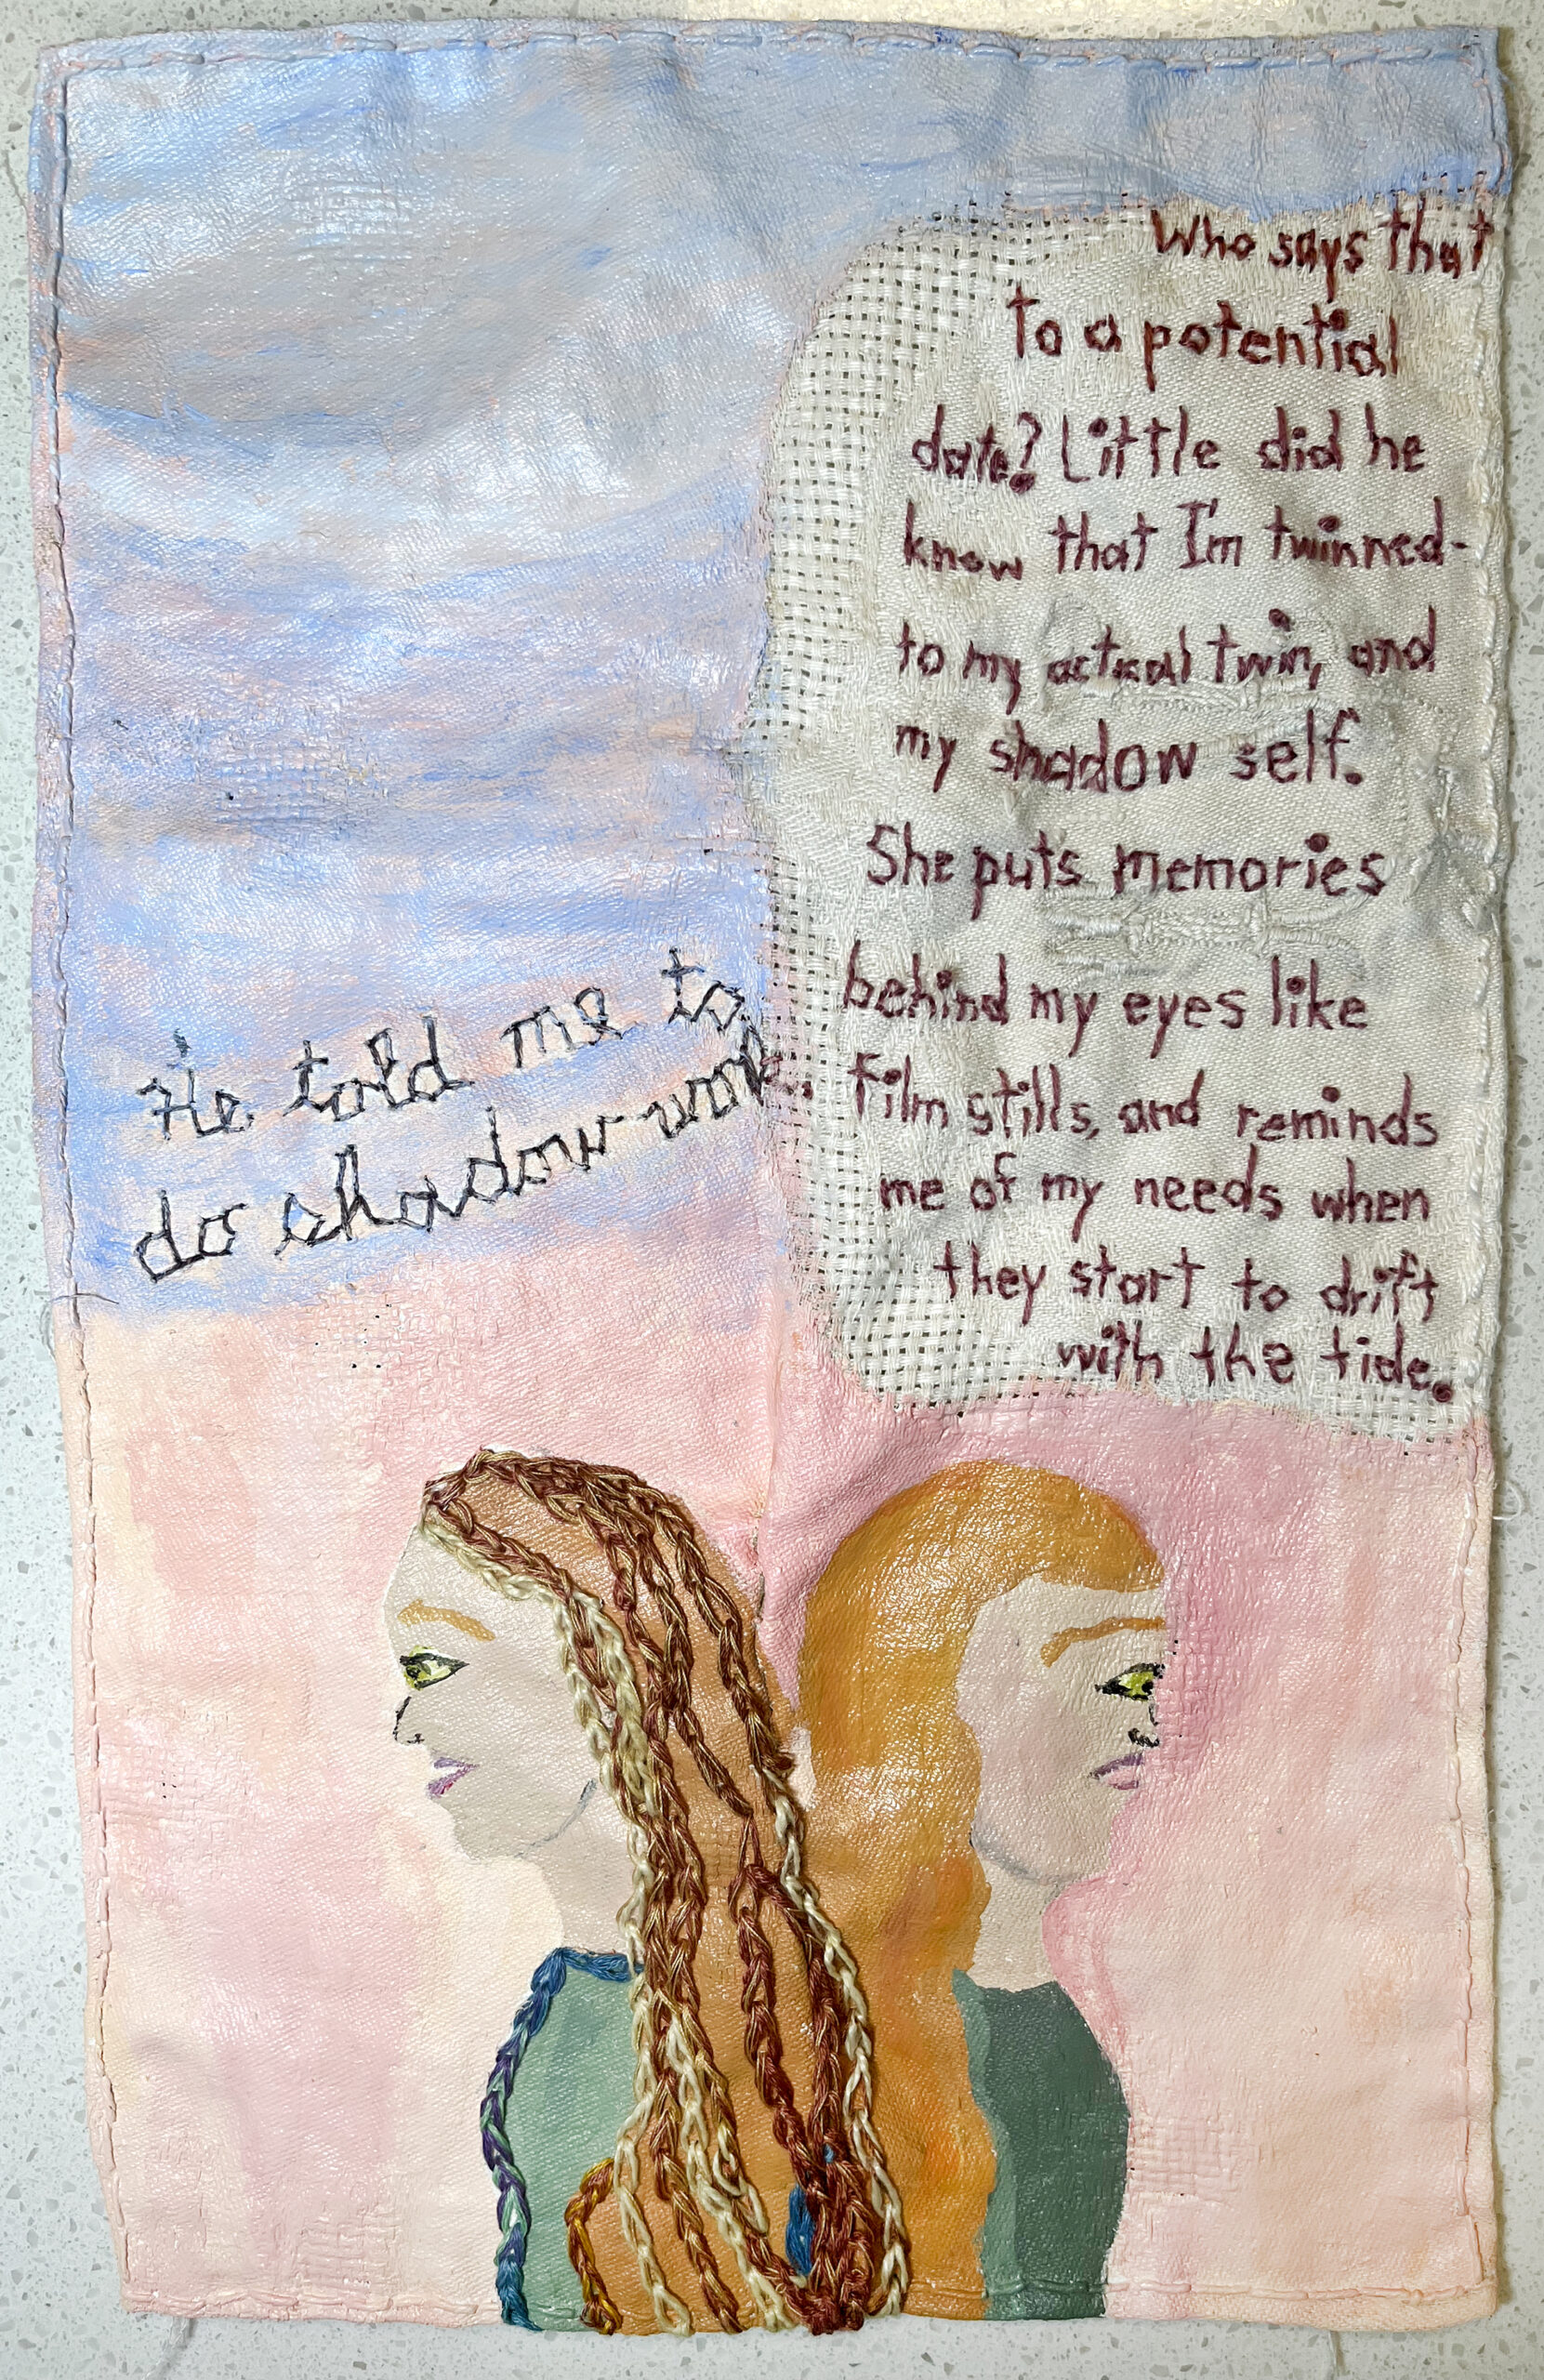 He told me to
do shadow work.
Who says that
to a potential
date? Little did he
know that I'm twinned-
to my actual twin, and
my shadow self.
She puts memories
behind my eyes like
film stills, and reminds
me of my needs when
they start to drift
with the tide.